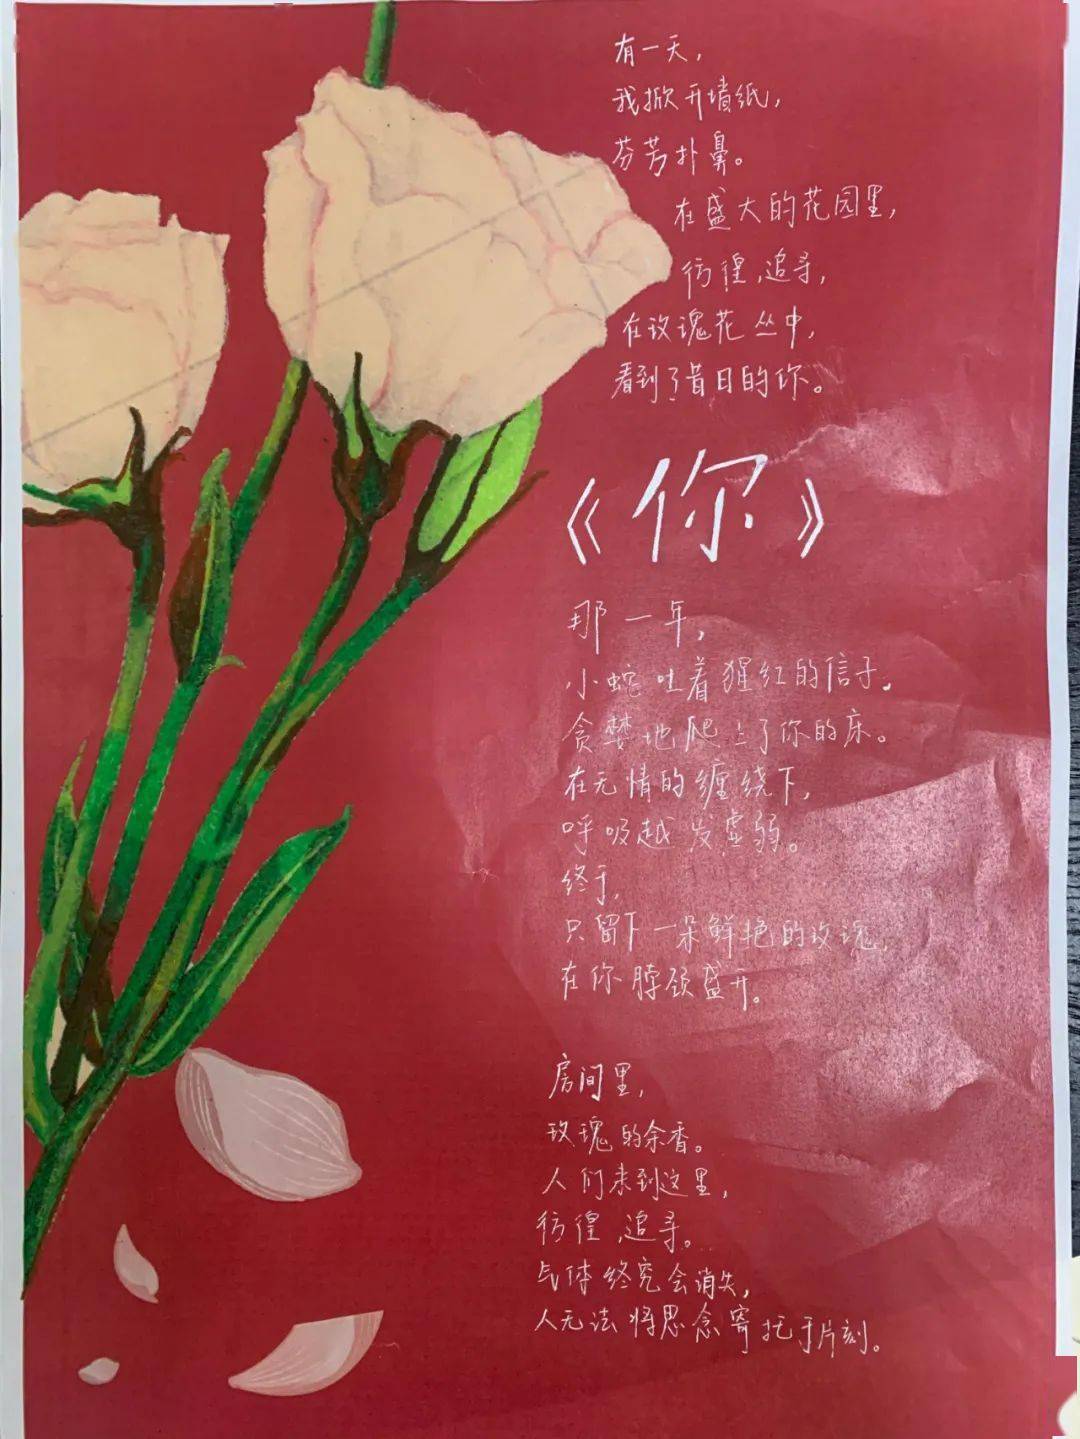 有一天，
我掀开墙纸，
芬芳扑鼻。
在盛大的花园里，
彷徨，追寻，
在玫瑰花丛中，
看到了昔日的你。
《你》
那一年，
小蛇吐着猩红的信子，
贪婪地爬上了你的床。
在无情的缠绕下，
呼吸越发虚弱。
终于，
只留下一朵鲜艳的玫瑰，
在你脖颈盛开。
房间里，
玫瑰的余香。
人们来到这里，
彷徨，追寻。
气体终究会消失，
人无法将思念寄托于片刻。